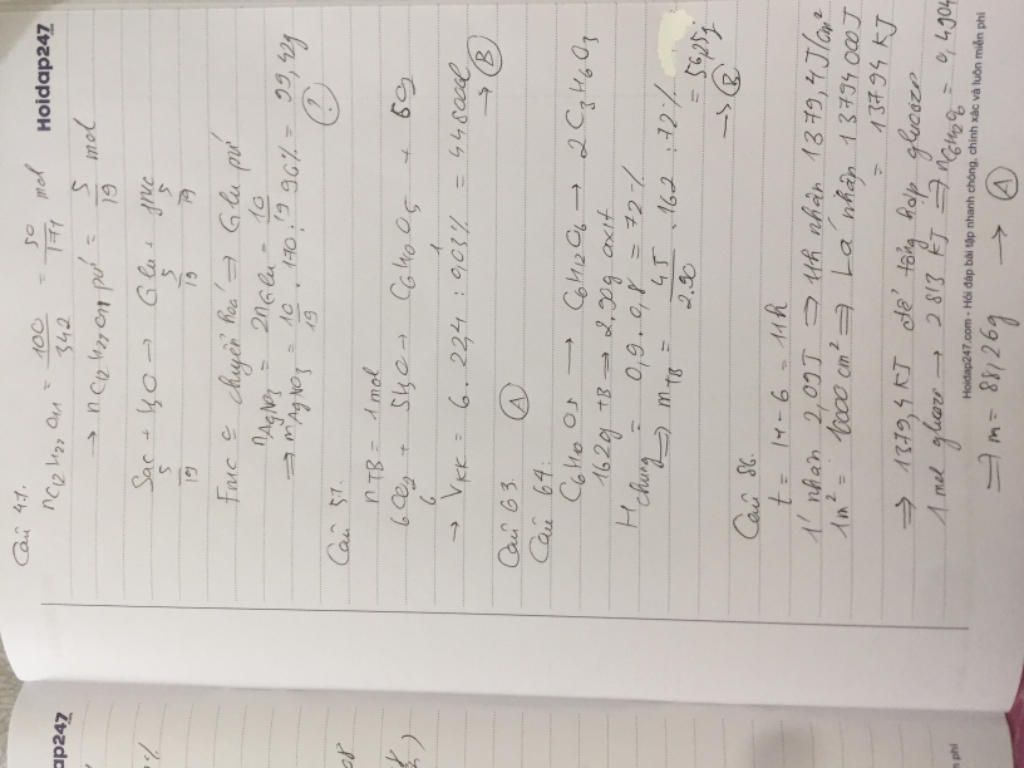 Hoidap247
Câu 47.
nC12H22O11 = 100/342 = 50/171 mol
→ nC12H22O11 pứ = 5/19 mol
Sac + H2O → Glu + fruc
5/19 5/19 5/19
Fruc = chuyển hoá ⇒ Glu pứ
nAgNO3 = 2nGlu = 10/19
⇒ mAgNO3 = 10/19 . 170 : 90% = 99,42g
(?)
Câu 57.
nTB = 1 mol
6CO2 + 5H2O → C6H10O5 + 6O2
6 1
→ VKK = 6 . 22,4 : 0,03% = 448000l
→ (B)
Câu 63. (A)
Câu 64.
C6H10O5 → C6H12O6 → 2C3H6O3
162g TB → 2.90g axit
H chung = 0,9 . 0,8 = 72%
⇒ mTB = 45/2.90 . 162 : 72%
= 56,25g
→ (B)
Câu 88.
t = 17 - 6 = 11h
1' nhận 2,09J ⇒ 11h nhận 1379,4J/cm2
1m2 = 10000cm2 ⇒ Lá nhận 13794000J
= 13794 KJ
⇒ 1379,4 KJ để tổng hợp glucozơ
1 mol glucozơ → 2813 KJ ⇒ nC6H12O6 = 0,4904
⇒ m = 88,26g → (A)
Hoidap247.com - Hỏi đáp bài tập nhanh chóng, chính xác và luôn miễn phí
ap247
%
08
n phí